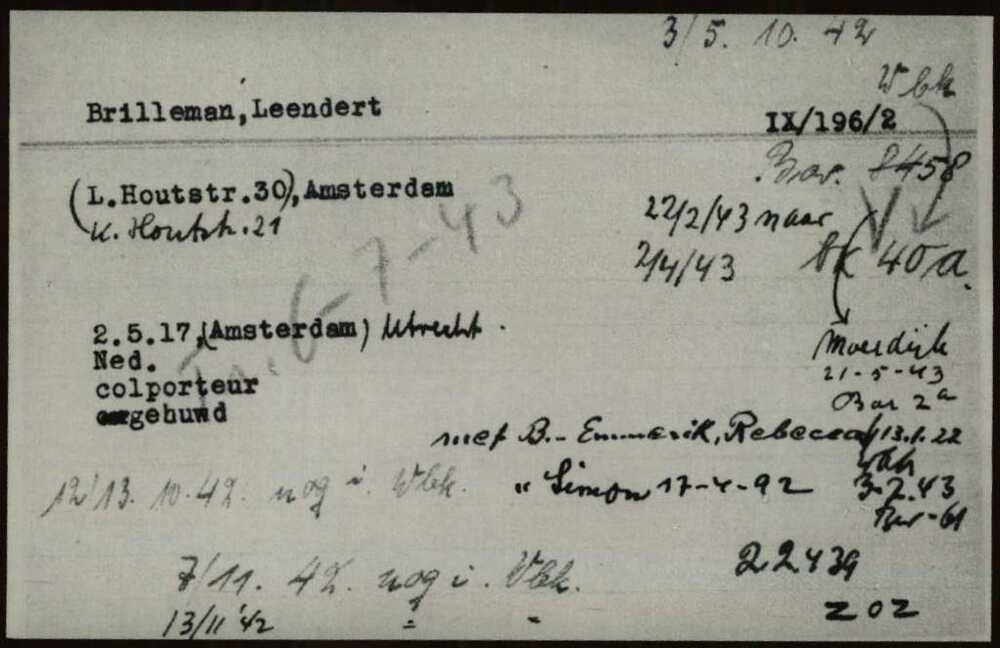 3/5. 10. 42
Vbk
Brilleman,Leendert
IX/196/2
Bar. 8458
(L.Houtstr.30),Amsterdam
K. Houtstr.21
22/2/43 naar
2/4/43
40a.
Tr. 6-7-43
2.5.17,(Amsterdam) Utrecht.
Ned.
colporteur
gehuwd
Moerdijk
21-5-43
Bar 2a
met B.- Emmerik, Rebecca 13.1.22
12/13. 10.42. nog i. Wbk.
" Simon 17-4-92
3-2.43
Bar-61
7/11. 42. nog i. Vbk.
22439
13/11 '42 " "
ZOZ